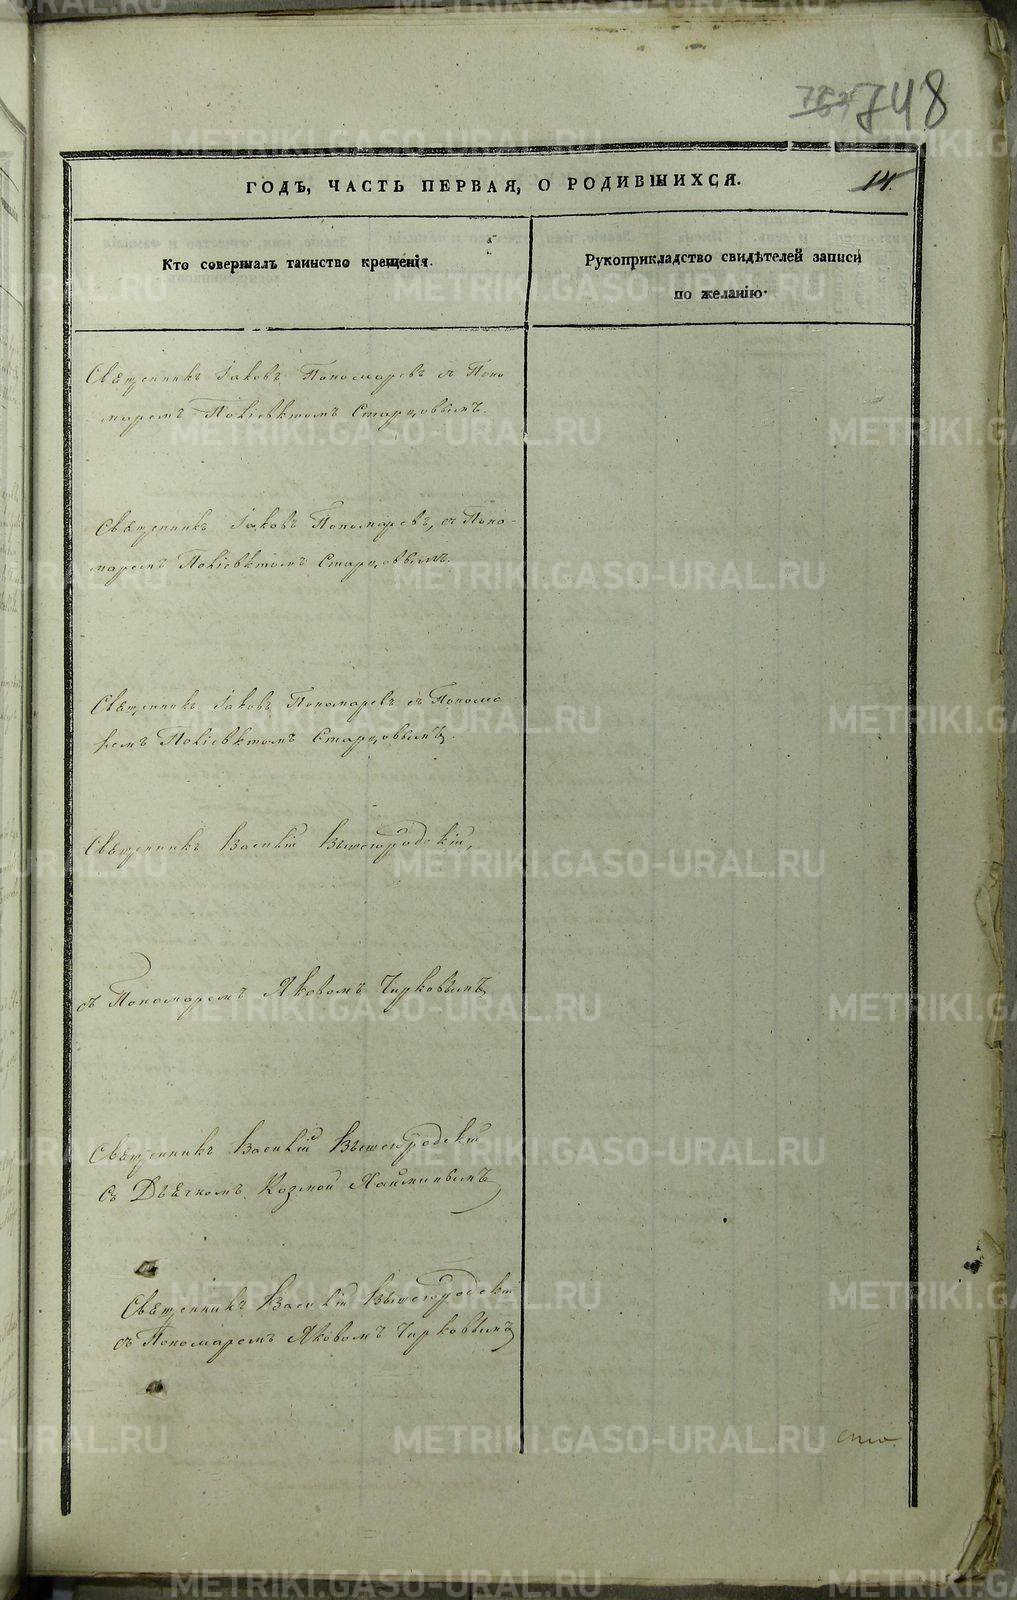 748
ГОДЪ, ЧАСТЬ ПЕРВАЯ, О РОДИВШИХСЯ.
14.
Кто совершалъ таинство крещенія.
Рукоприкладство свидѣтелей записи
по желанію.
Священникъ Іаковъ Пономаревъ съ Поно
маремъ Поліевктомъ Старцовымъ.
Священникъ Іаковъ Пономаревъ, съ Поно-
маремъ Поліевктомъ Старцовымъ.
Священникъ Іаковъ Пономаревъ съ Понома
ремъ Поліевктомъ Старцовымъ.
Священникъ Василій Вышегородскій,
съ Пономаремъ Яковомъ Чирковымъ
Священникъ Василій Вышегородскій
съ Дьячкомъ Козмой Хайминымъ
Священникъ Василій Вышегородскій
съ Пономаремъ Яковомъ Чирковымъ
METRIKI.GASO-URAL.RU